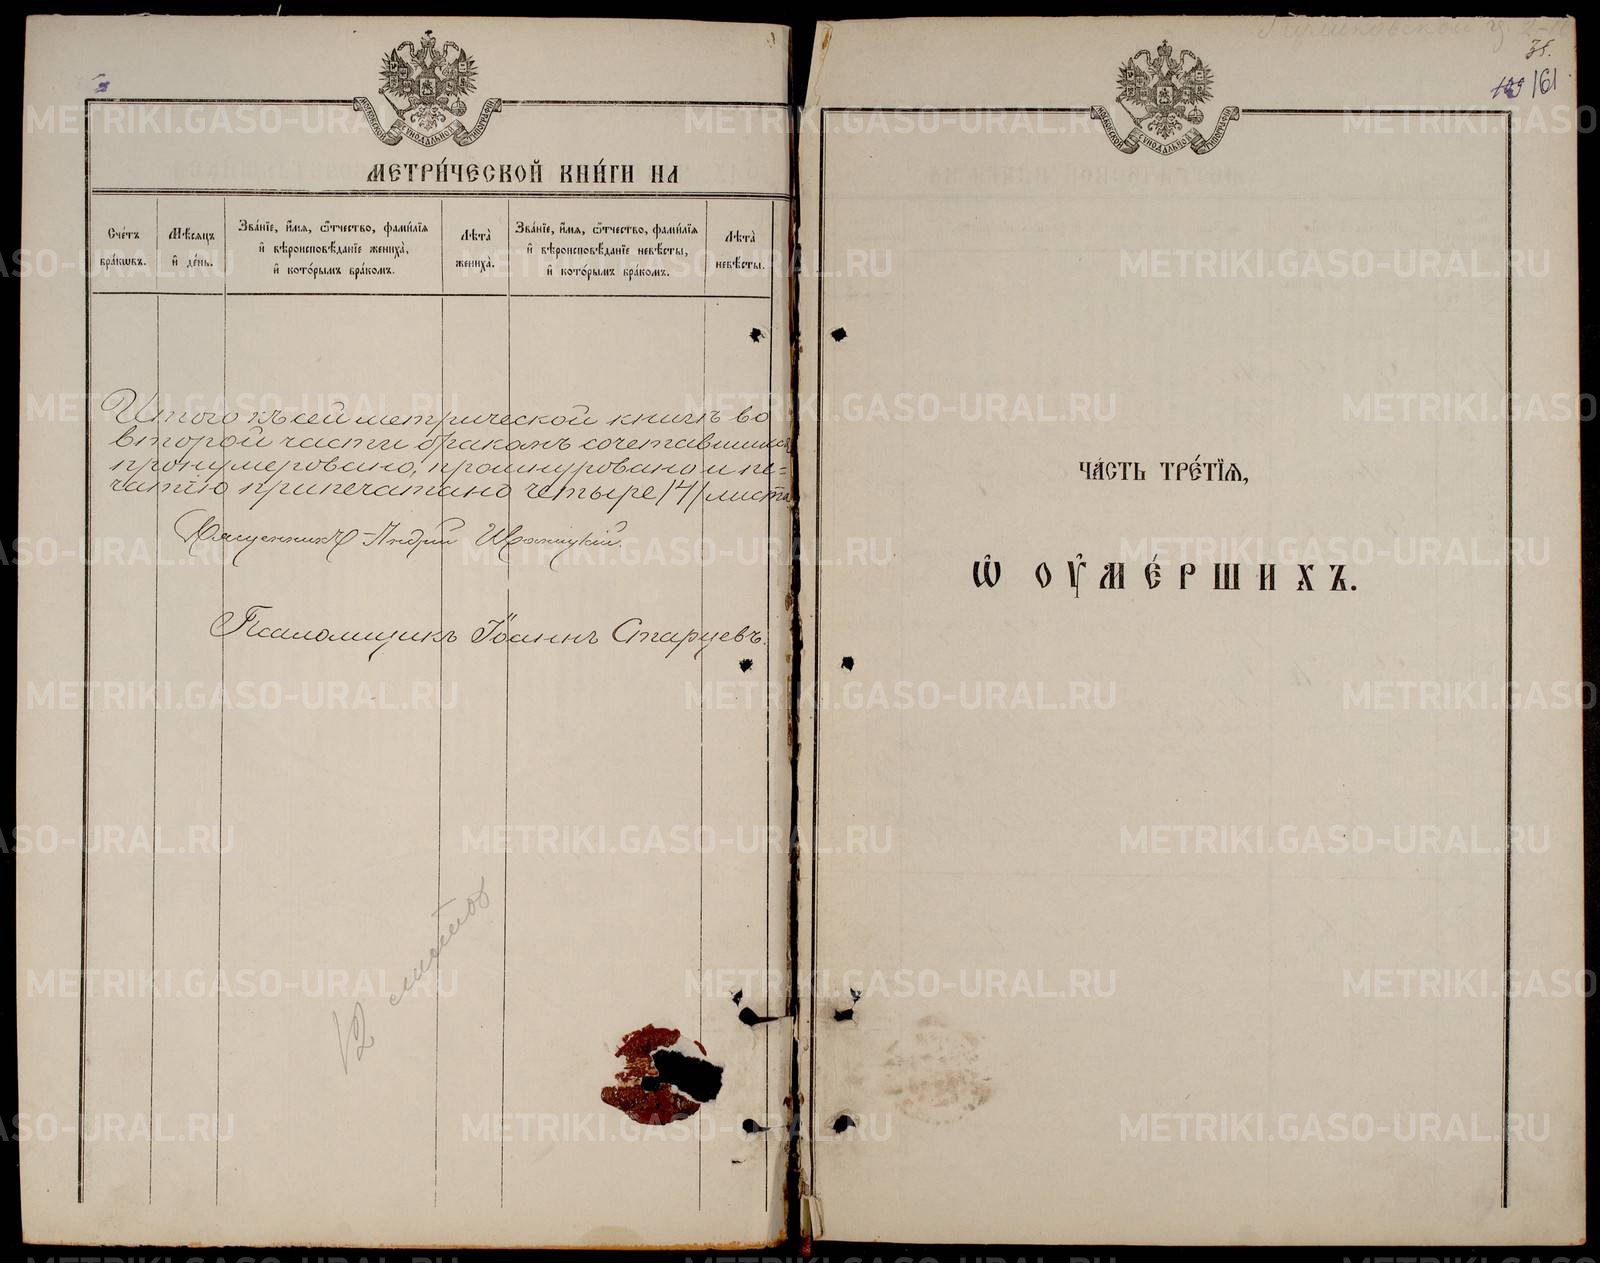 МЕТРИ́ЧЕСКОЙ КНИ́ГИ НА
Сче́тъ бра́кѡвъ.
Мѣ́сяцъ и҆ де́нь.
Зва́нїе, и҆́мя, ѻ҆́тчество, фами́лїя и҆ вѣроисповѣ́данїе жениха̀, и҆ кото́рымъ бра́комъ.
Лѣта̀ жениха̀.
Зва́нїе, и҆́мя, ѻ҆́тчество, фами́лїя и҆ вѣроисповѣ́данїе невѣ́сты, и҆ кото́рымъ бра́комъ.
Лѣта̀ невѣ́сты.
Итого къ сей метрической книгѣ во
второй части бракомъ сочетавшихся
пронумеровано, прошнуровано и пе=
чатію припечатано четыре /4/ листа
Священникъ Андрей
Псаломщикъ Іоаннъ Старцевъ.
12 листов
МОСКОВСКОЙ СѴНОДАЛЬНОЙ ТИПОГРАФІИ
35.
161
МОСКОВСКОЙ СѴНОДАЛЬНОЙ ТИПОГРАФІИ
ЧА́СТЬ ТРЕ́ТЇѦ,
Ѡ҆ ОУ҆МЕ́РШИХЪ.
METRIKI.GASO-URAL.RU